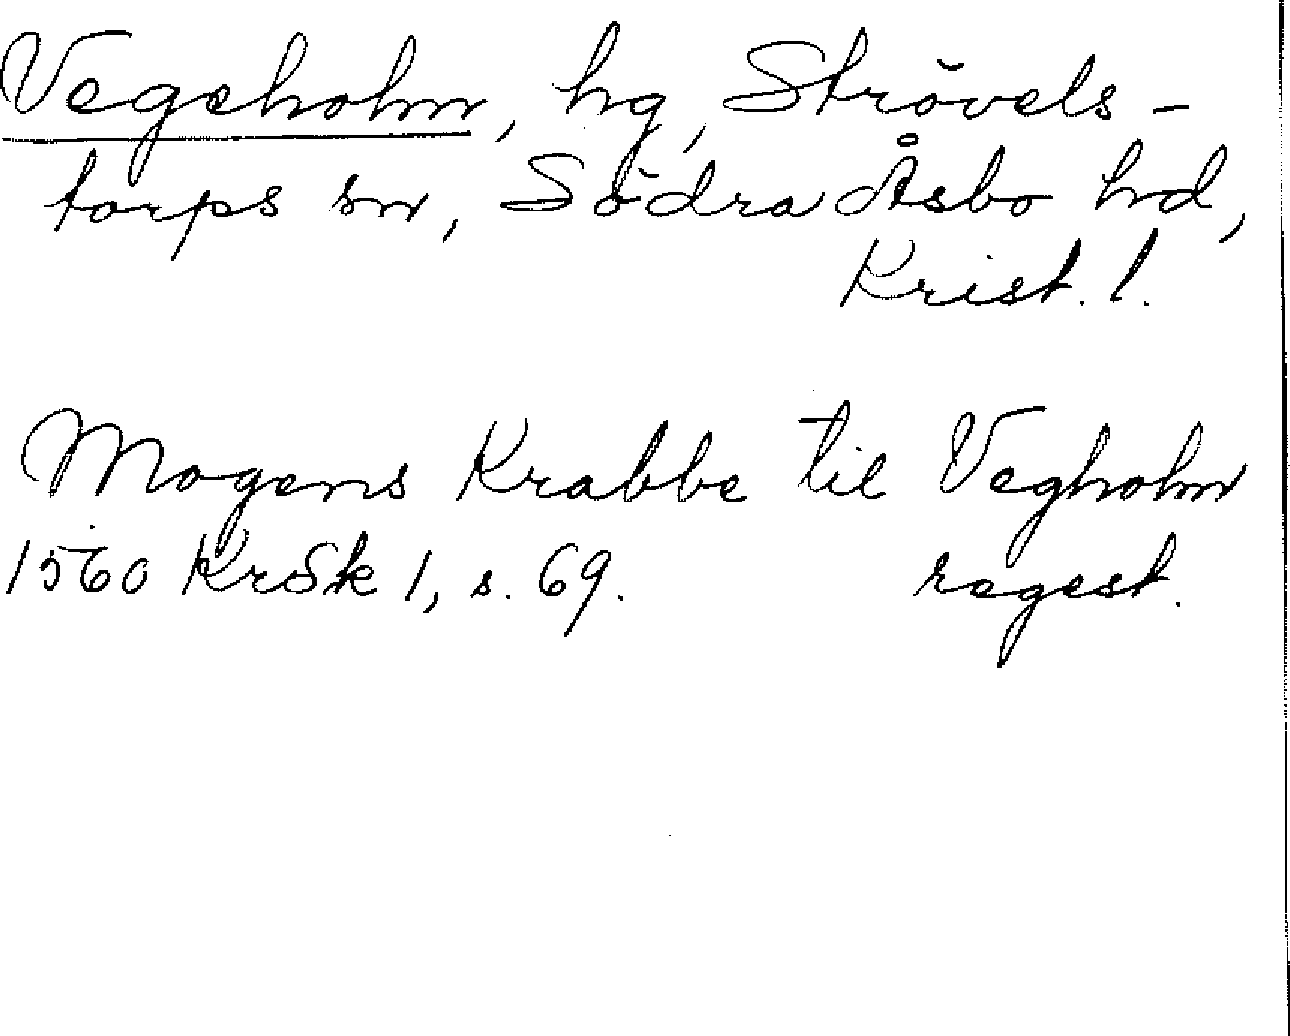 Vegeholm, hg, Strövels-
torps sn, Södra Åsbo hd,
Krist. l.
Mogens Krabbe til Vegholm
1560 KrSk 1, s. 69. regest.